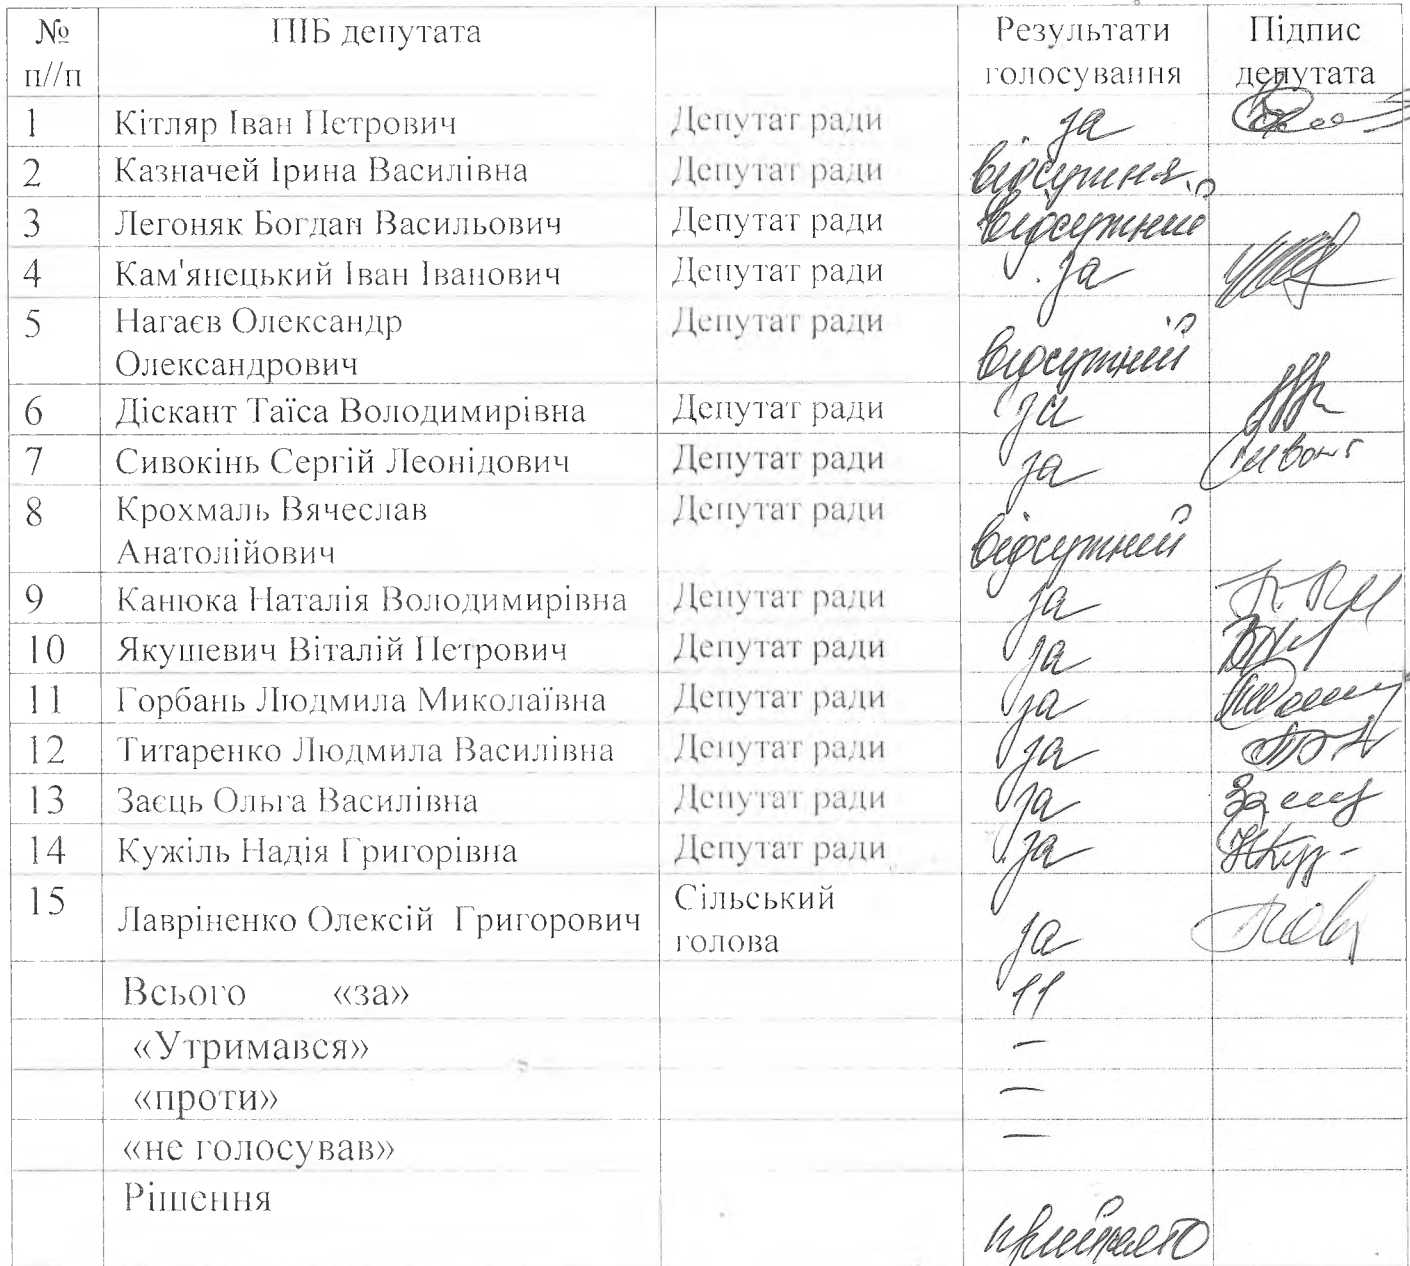 № п//п ПІБ депутата Результати голосування Підпис депутата
1 Кітляр Іван Петрович Депутат ради за
2 Казначей Ірина Василівна Депутат ради відсутня
3 Легоняк Богдан Васильович Депутат ради відсутній
4 Кам'янецький Іван Іванович Депутат ради за
5 Нагаєв Олександр Олександрович Депутат ради відсутній
6 Діскант Таїса Володимирівна Депутат ради за
7 Сивокінь Сергій Леонідович Депутат ради за
8 Крохмаль Вячеслав Анатолійович Депутат ради відсутній
9 Канюка Наталія Володимирівна Депутат ради за
10 Якушевич Віталій Петрович Депутат ради за
11 Горбань Людмила Миколаївна Депутат ради за
12 Титаренко Людмила Василівна Депутат ради за
13 Заєць Ольга Василівна Депутат ради за
14 Кужіль Надія Григорівна Депутат ради за
15 Лавріненко Олексій Григорович Сільський голова за
Всього «за» 11
«Утримався» –
«проти» –
«не голосував» –
Рішення прийнято